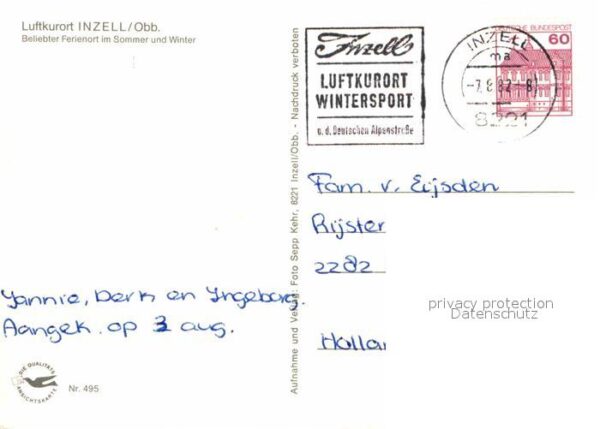 Luftkurort INZELL/Obb.
Beliebter Ferienort im Sommer und Winter
Inzell
LUFTKURORT
WINTERSPORT
a. d. Deutschen Alpenstraße
DEUTSCHE BUNDESPOST
60
INZELL
ma
-7.8.87.-8
8221
Aufnahme und Verlag: Foto Sepp Kehr, 8221 Inzell/Obb. - Nachdruck verboten
Fam. v. Eijsden
Rijster
2282
Holla
Yannie, Derk en Ingeborg.
Aangek. op 3 aug.
privacy protection
Datenschutz
DIE QUALITÄTS
ANSICHTSKARTE
Nr. 495